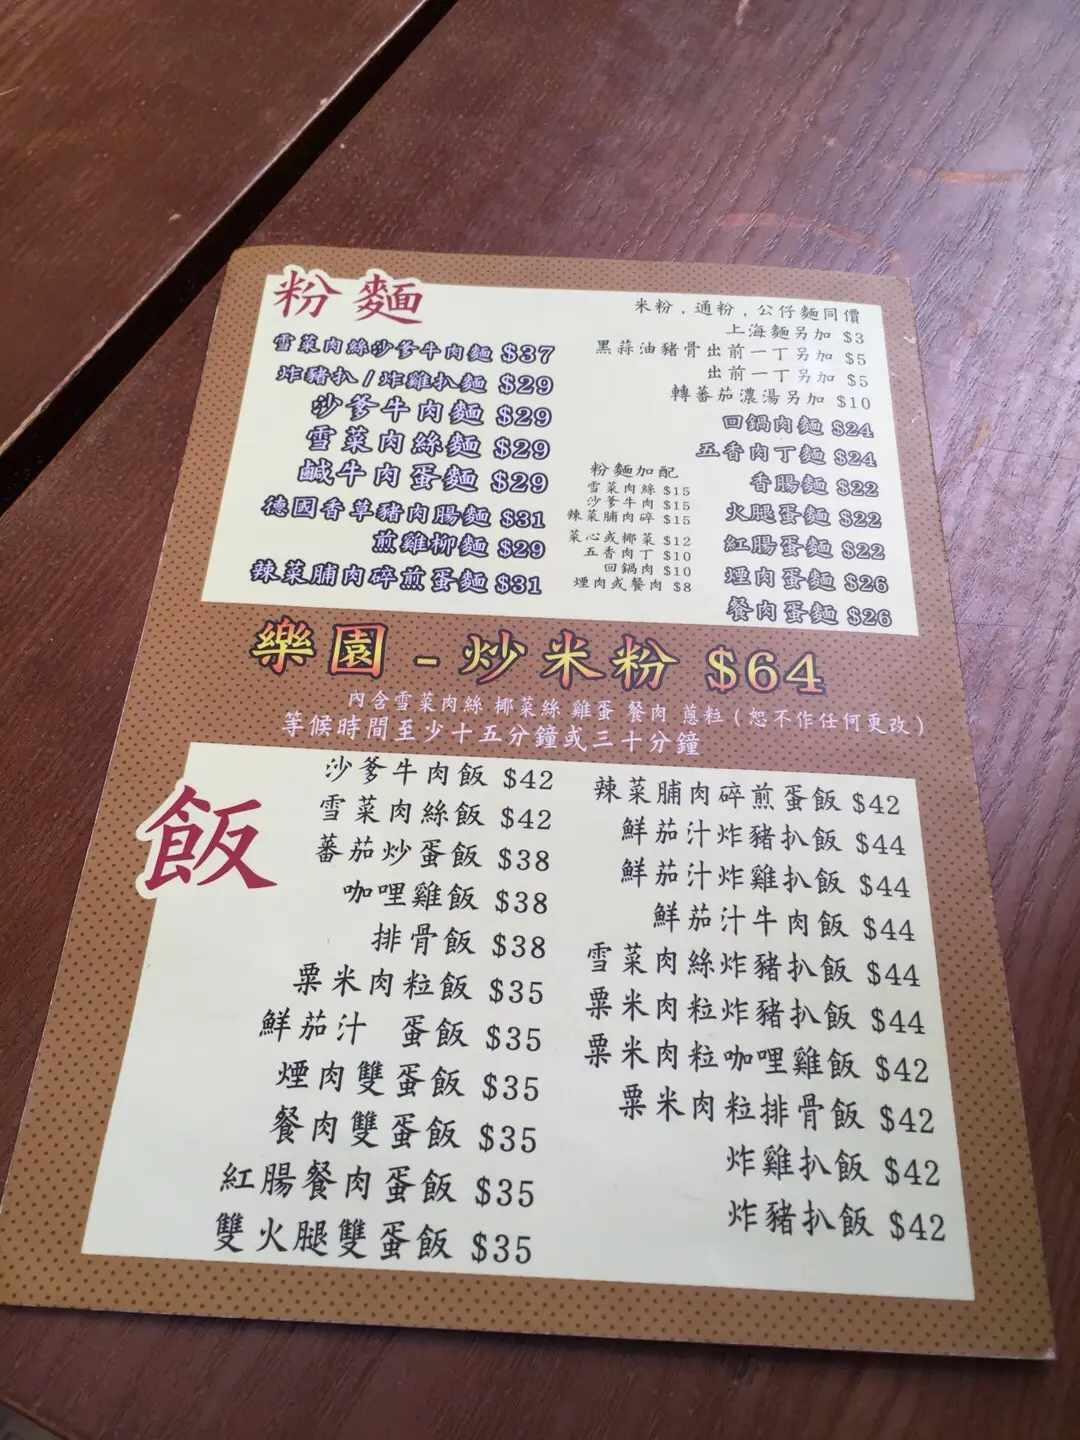 粉麵
雪菜肉絲沙爹牛肉麵 $37
炸豬扒/炸雞扒麵 $29
沙爹牛肉麵 $29
雪菜肉絲麵 $29
鹹牛肉蛋麵 $29
德國香草豬肉腸麵 $31
煎雞柳麵 $29
辣菜脯肉碎煎蛋麵 $31
米粉,通粉,公仔麵同價
上海麵另加 $3
黑蒜油豬骨出前一丁另加 $5
出前一丁另加 $5
轉蕃茄濃湯另加 $10
粉麵加配
雪菜肉絲 $15
沙爹牛肉 $15
辣菜脯肉碎 $15
菜心或椰菜 $12
五香肉丁 $10
回鍋肉 $10
煙肉或餐肉 $8
回鍋肉麵 $24
五香肉丁麵 $24
香腸麵 $22
火腿蛋麵 $22
紅腸蛋麵 $22
煙肉蛋麵 $26
餐肉蛋麵 $26
樂園 - 炒米粉 $64
內含雪菜肉絲 椰菜絲 雞蛋 餐肉 蔥粒(恕不作任何更改)
等候時間至少十五分鐘或三十分鐘
飯
沙爹牛肉飯 $42
雪菜肉絲飯 $42
蕃茄炒蛋飯 $38
咖哩雞飯 $38
排骨飯 $38
粟米肉粒飯 $35
鮮茄汁 蛋飯 $35
煙肉雙蛋飯 $35
餐肉雙蛋飯 $35
紅腸餐肉蛋飯 $35
雙火腿雙蛋飯 $35
辣菜脯肉碎煎蛋飯 $42
鮮茄汁炸豬扒飯 $44
鮮茄汁炸雞扒飯 $44
鮮茄汁牛肉飯 $44
雪菜肉絲炸豬扒飯 $44
粟米肉粒炸豬扒飯 $44
粟米肉粒咖哩雞飯 $42
粟米肉粒排骨飯 $42
炸雞扒飯 $42
炸豬扒飯 $42